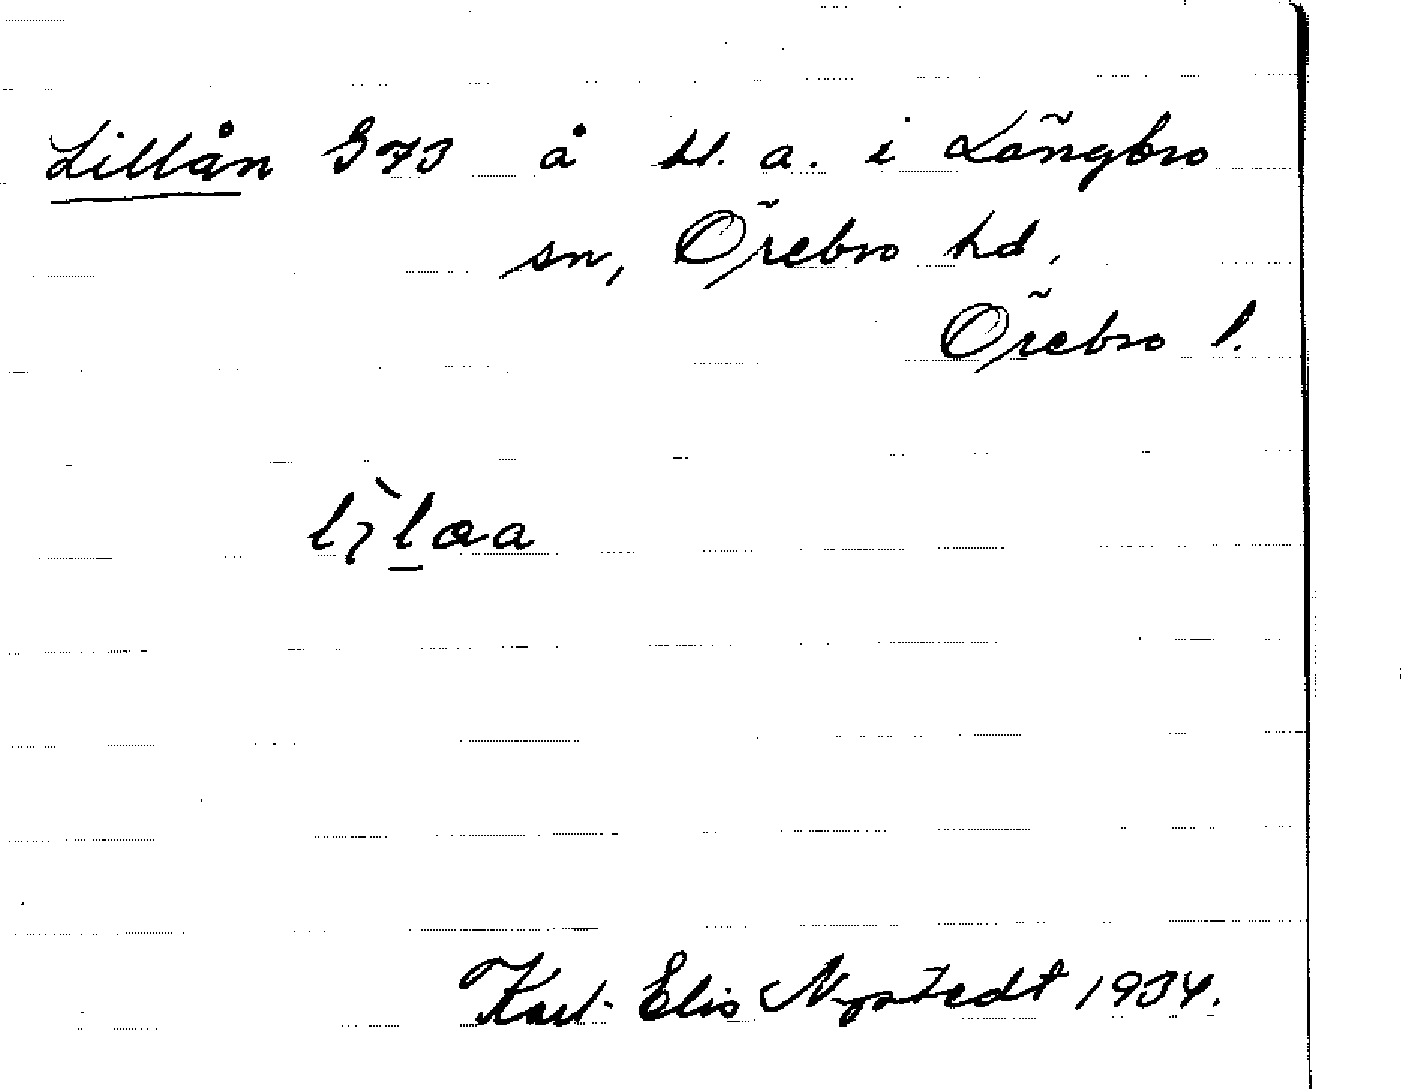 Lillån G73 å bl. a. i Längbro
sn, Örebro hd,
Örebro l.
Karl-Elis Nystedt 1934.